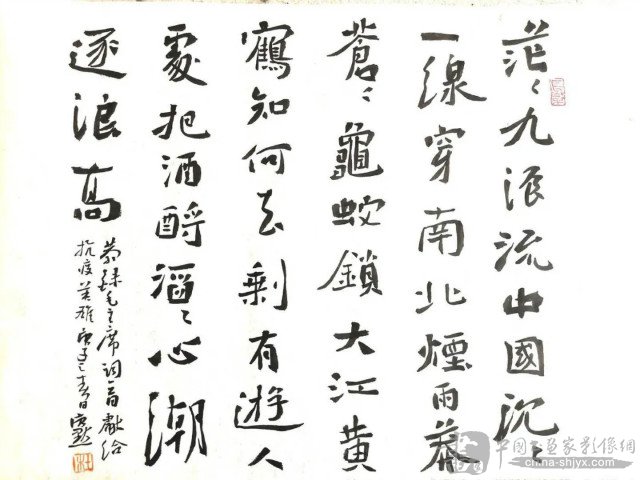 茫〻九派流中國沉〻
一線穿南北煙雨莽
蒼〻龜蛇鎖大江黃
鶴知何去剩有遊人
處把酒酹滔〻心潮
逐浪高
恭錄毛主席詞一首獻給
抗疫英雄庚子之春日
中国书画家影像網
china-shjyx.com